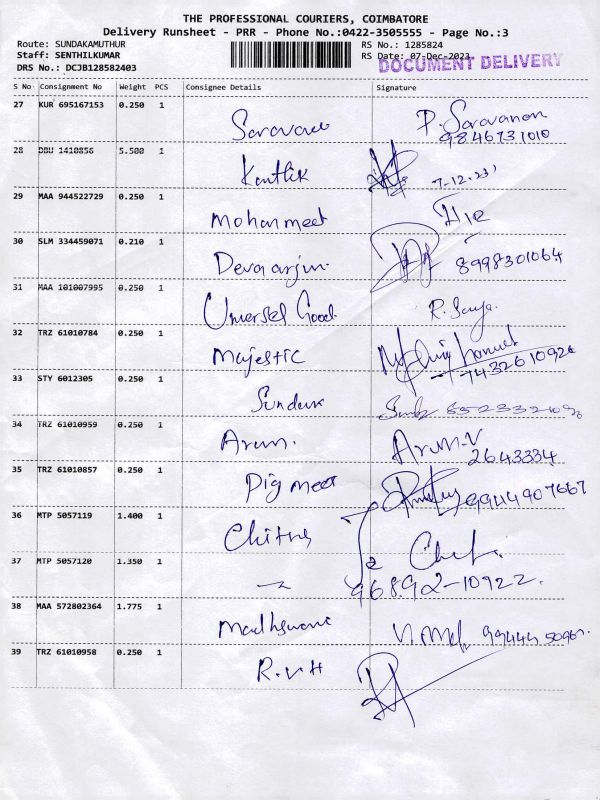 THE PROFESSIONAL COURIERS, COIMBATORE
Delivery Runsheet - PRR - Phone No.:0422-3505555 - Page No.:3
Route: SUNDAKAMUTHUR
RS No.: 1285824
Staff: SENTHILKUMAR
RS Date: 07-Dec-2023
DRS No.: DCJB128582403
DOCUMENT DELIVERY
S No Consignment No Weight PCS Consignee Details Signature
27 KUR 695167153 0.250 1
P. Saravanan
9846731010
28 DBU 1410856 5.500 1 Karthik
7-12.23
29 MAA 944522729 0.250 1 Mohanmeet
30 SLM 334459071 0.210 1 Devaarjun.
8998301064
31 MAA 101007995 0.250 1
32 TRZ 61010784 0.250 1 Majestic
7432610926
33 STY 6012305 0.250 1
34 TRZ 61010959 0.250 1 Arun. Arun.V
2643334
35 TRZ 61010857 0.250 1 Pigmeet
9944907667
36 MTP 5057119 1.400 1
37 MTP 5057120 1.350 1
96892-10922.
38 MAA 572802364 1.775 1
39 TRZ 61010958 0.250 1 R.V.H